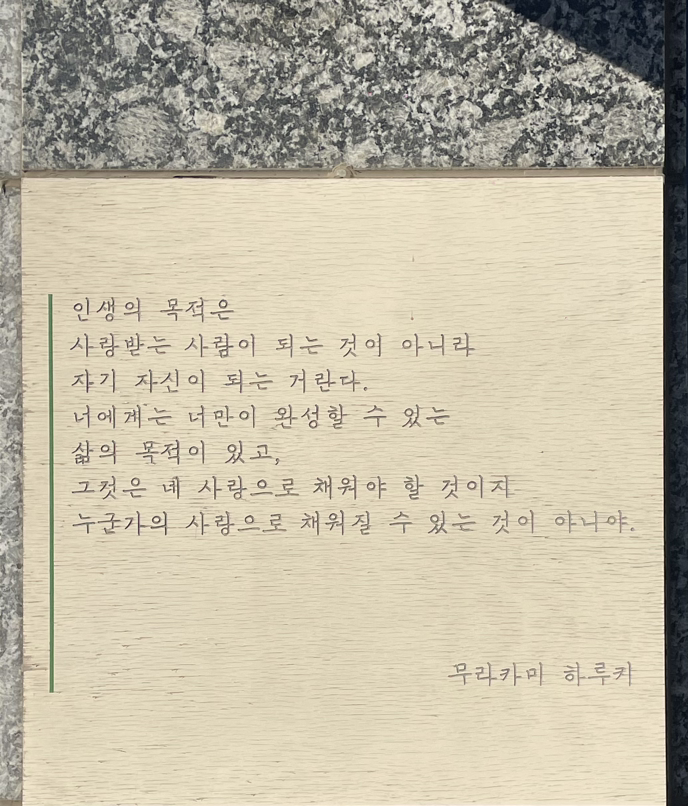 인생의 목적은
사랑받는 사람이 되는 것이 아니라
자기 자신이 되는 거란다.
너에게는 너만이 완성할 수 있는
삶의 목적이 있고,
그것은 네 사랑으로 채워야 할 것이지
누군가의 사랑으로 채워질 수 있는 것이 아니야.
무라카미 하루키